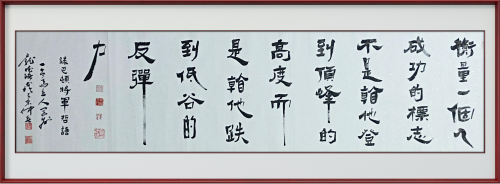 衡量一個人
成功的標志
不是看他登
到頂峰的
高度而
是看他跌
到低谷的
反彈
力
緑巴頓將軍哲語